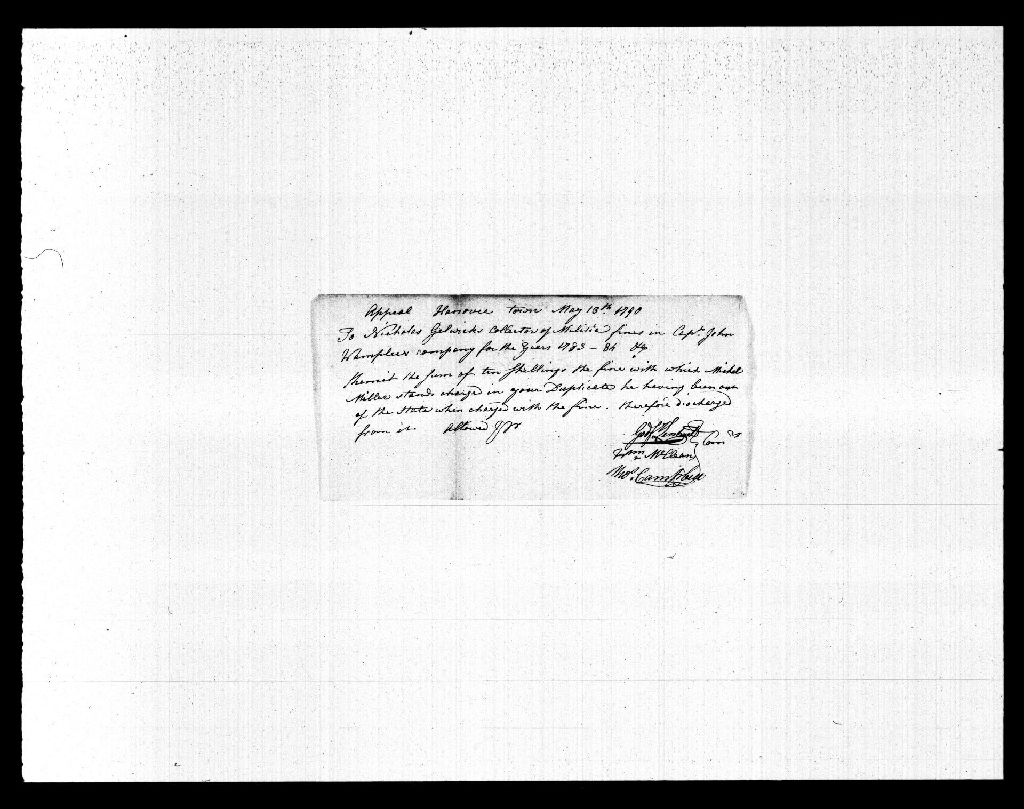 Appeal Hanover town May 13th 1790
To Nicholas Gelwicks Collector of Militia fines in Capt. John
Wamplers company for the Years 1783 - 84 &c
Remit the sum of ten Shillings the fine with which Michel
Miller stands charged in your Duplicate he having been out
of the State when charged with the fine. therefore discharge
from it. allowed
Godf. Lenhart
Wm. McClean
Thos. Campbell
Comrs